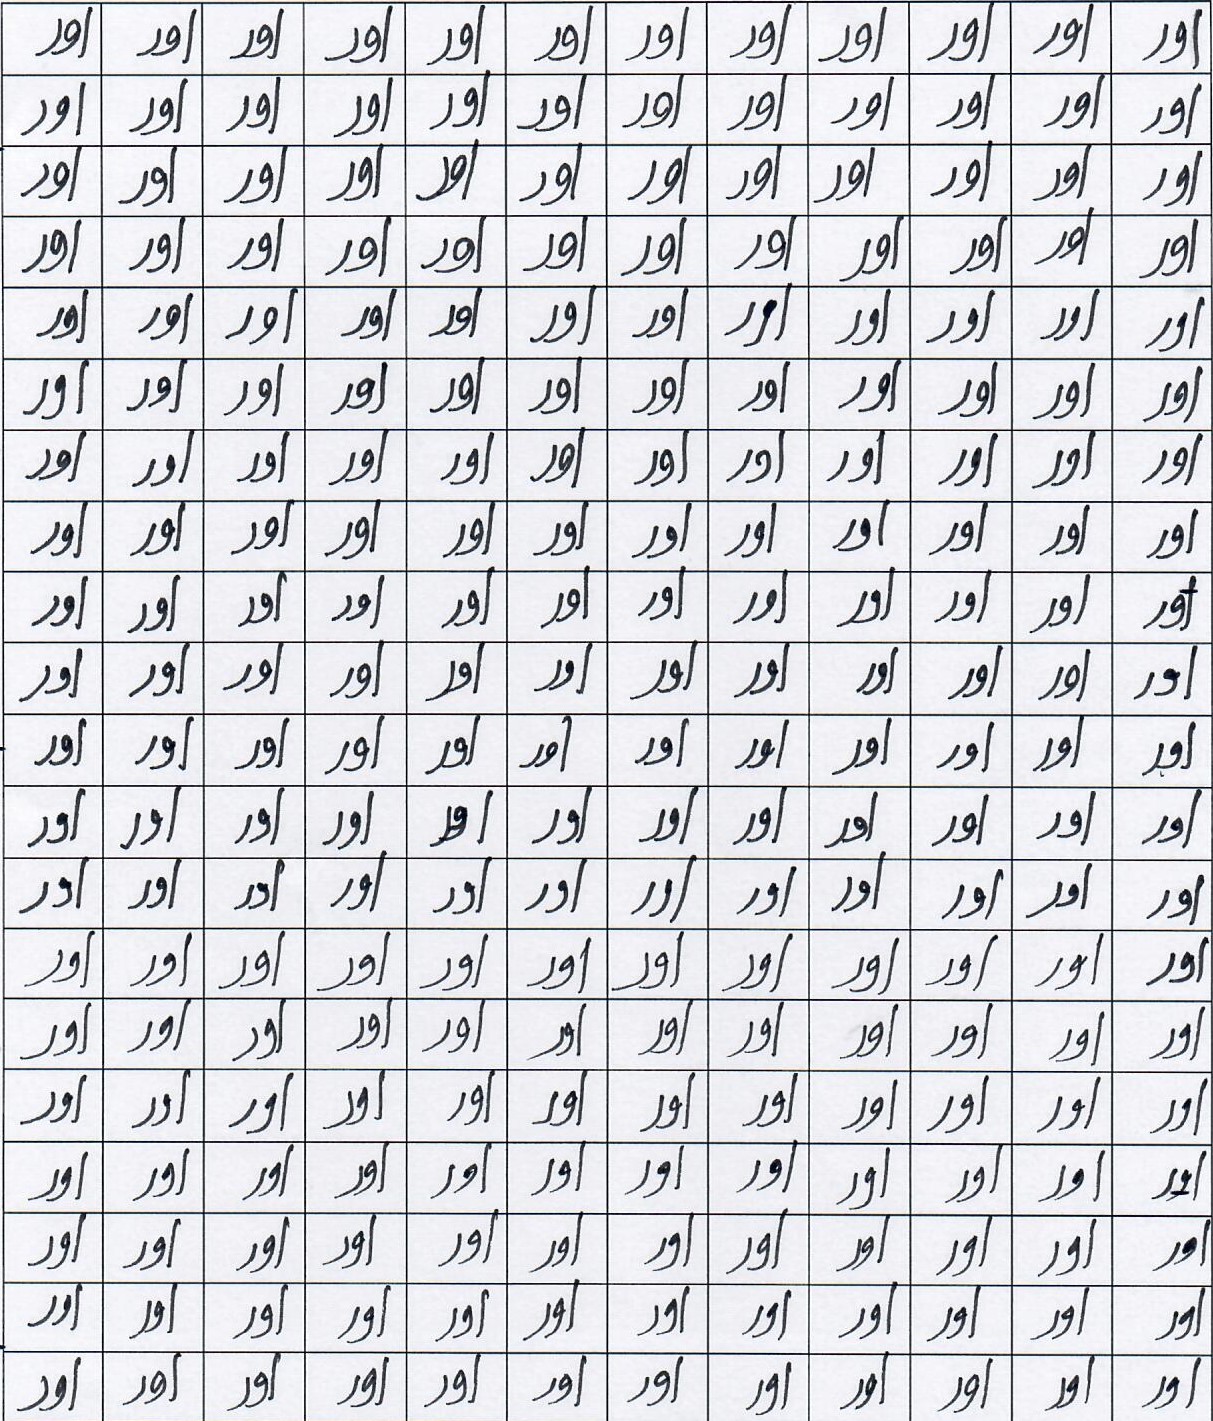 اور اور اور اور اور اور اور اور اور اور اور اور
اور اور اور اور اور اور اور اور اور اور اور اور
اور اور اور اور اور اور اور اور اور اور اور اور
اور اور اور اور اور اور اور اور اور اور اور اور
اور اور اور اور اور اور اور اور اور اور اور اور
اور اور اور اور اور اور اور اور اور اور اور اور
اور اور اور اور اور اور اور اور اور اور اور اور
اور اور اور اور اور اور اور اور اور اور اور اور
اور اور اور اور اور اور اور اور اور اور اور اور
اور اور اور اور اور اور اور اور اور اور اور اور
اور اور اور اور اور اور اور اور اور اور اور اور
اور اور اور اور اور اور اور اور اور اور اور اور
اور اور اور اور اور اور اور اور اور اور اور اور
اور اور اور اور اور اور اور اور اور اور اور اور
اور اور اور اور اور اور اور اور اور اور اور اور
اور اور اور اور اور اور اور اور اور اور اور اور
اور اور اور اور اور اور اور اور اور اور اور اور
اور اور اور اور اور اور اور اور اور اور اور اور
اور اور اور اور اور اور اور اور اور اور اور اور
اور اور اور اور اور اور اور اور اور اور اور اور